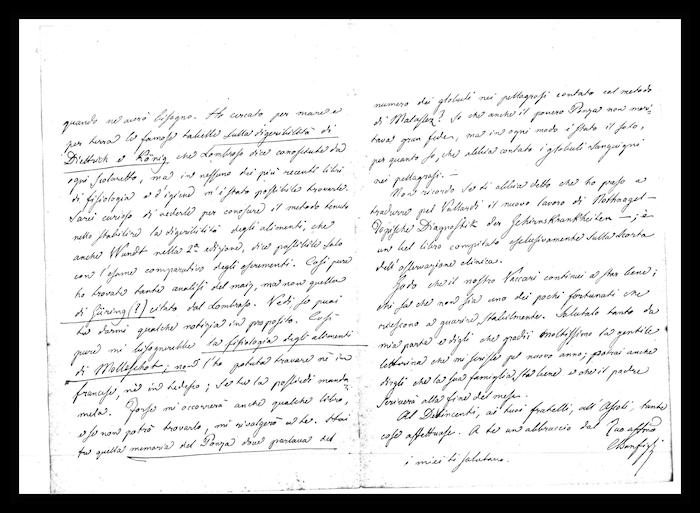 quando ne avrò bisogno. Ho cercato per mare e
per terra le famose tabelle sulla digeribilità di
Diettrich e König che Lombroso dice conosciute da
ogni scolaretto, ma in nessuno dei più recenti libri
di fisiologia e d'igiene m'è stato possibile trovarle.
Sarei curioso di vederle per conoscere il metodo tenuto
nello stabilire la digeribilità degli alimenti, che
anche Wundt nella 2ª edizione, dice possibile solo
con l'esame comparativo degli escrementi. Così pure
ho trovato tante analisi del maiz, ma non quella
di Güring (?) citato dal Lombroso. Vedi se puoi
tu darmi qualche notizia in proposito. Così
pure mi bisognerebbe la fisiologia degli alimenti
di Molleschot; non l'ho potuta trovare nè in
francese, nè in tedesco; se tu la possiedi manda
mela. Forse mi occorrerà anche qualche libro,
e se non potrò trovarlo, mi rivolgerò a te. Hai
tu quella memoria del Ponza dove parlava del
numero dei globuli nei pellagrosi contato col metodo
di Malassez? So che anche il povero Ponza non meri-
tava gran fede, ma in ogni modo è stato il solo,
per quanto so, che abbia contato i globuli sanguigni
nei pellagrosi.—
Non ricordo se ti abbia detto che ho preso a
tradurre pel Vallardi il nuovo lavoro di Nothnagel—
Topische Diagnostik der Gehirnkrankheiten—; è
un bel libro compilato esclusivamente sulla scorta
dell'osservazione clinica.
Godo che il nostro Vaccari continui a star bene;
chi sa che non sia uno dei pochi fortunati che
riescono a guarire stabilmente. Salutalo tanto da
mia parte e digli che gradii moltissimo la gentile
letterina che mi scrisse pel nuovo anno; potrai anche
dirgli che la sua famiglia sta bene e che il padre
scriverà alla fine del mese.
Al Delincenti, ai tuoi fratelli, all'Ascoli, tante
cose affettuose. A te un abbraccio dal Tuo affmo
i miei ti salutano.